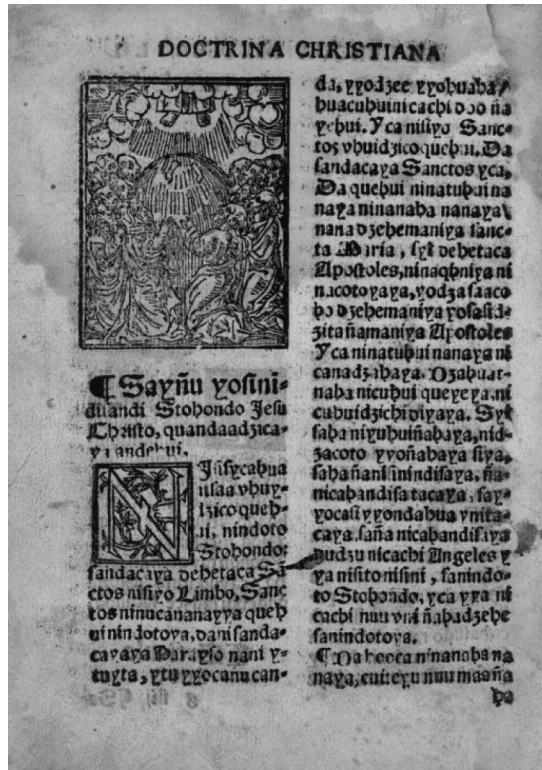 DOCTRINA CHRISTIANA
¶ Sayñu yosini-
duandi Stohondo Jesu
Christo, quandaadzica-
ya andehui.
NIñsycahua
usaa vhuy-
dzico queh-
ui, nindoto
Stohondo:
sandacaya dehetaca Sã
ctos nisiyo Limbo, Sanc
tos ninucananayya queh
ui nindotoya, dani sanda-
cayaya Parayso nani y-
tuyta, ytuyyocañucan-
da, yyodzee yyohuaha/
huacuhuinicachi doo ña
yehui. Yca nisiyo Sanc-
tos vhuidzico quehui. Da
sandacaya Sanctos yca,
Da quehui ninatuhui na
naya ninanaba nanaya\
nana dzehemaniya sanc-
ta Maria, syi dehetaca
Apostoles, ninaqhniya ni
nacotoyaya, yodza saaco
ho dzehemaniya yosasid-
zitañamaniya Apostoles
Yca ninatuhui nanaya ni
canadzahaya. Dzahuat-
naha nicuhui queyeya, ni
cuhuidzichi diyaya. Syi
saha niyuhuiñahaya, nid-
zacoto yyoñahaya siya,
sahañani sinindisaya. ña-
nicahandisa tacaya, say-
yocasi yyondahua ynita-
caya. saña nicahandisaya
dudzu nicachi Angeles y
ya nisito nisini, sanindo-
to Stohondo, yca yya ni
cachi nuu vni ñahadzehe
sanindotoya.
¶ Da hooca ninanaha na
naya, cuiteyu nuu maaña
ha